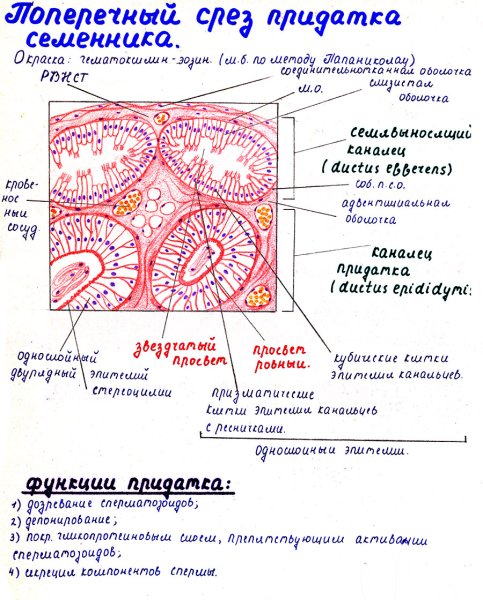 Поперечный срез придатка
семенника.
Окраска: гематоксилин-эозин. (м.б. по методу Папаниколау)
соединительнотканная оболочка
РВНСТ
м.о.
слизистая
оболочка
семявыносящий
каналец
(ductus efferens)
соб. п. с.о.
адвентициальная
оболочка
крове-
нос
ный
сосуд.
каналец
придатка
(ductus epididymi:
звездчатый
просвет
просвет
ровный.
однослойный
двурядный эпителий
стереоцилии
кубические клетки
эпителия канальцев.
призматические
клетки эпителия канальцев
с ресничками.
однослойный эпителий.
функции придатка:
1) дозревание сперматозоидов;
2) депонирование;
3) покр. гликопротеиновым слоем, препятствующим активации
сперматозоидов;
4) секреция компонентов спермы.